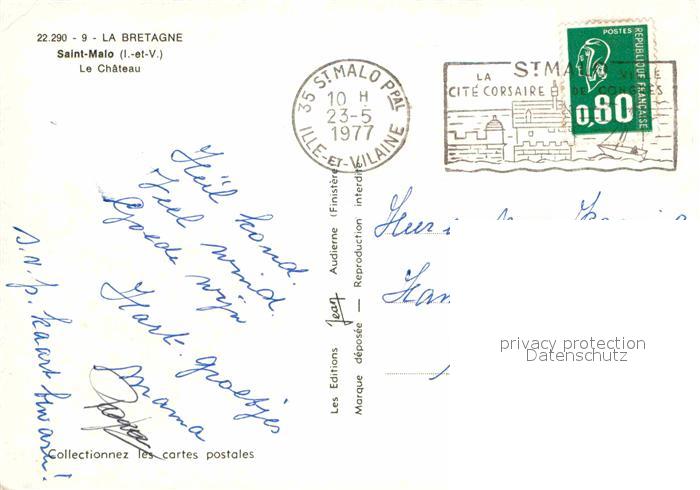 22.290 - 9 - LA BRETAGNE
Saint-Malo (I.-et-V.)
Le Château
35 ST MALO PPAL
10 H
23-5
1977
ILLE-ET-VILAINE
ST MALO
LA CITÉ CORSAIRE
VILLE DE CONGRÈS
POSTES
RÉPUBLIQUE FRANÇAISE
0,80
Heel koud.
Veel wind.
Goede wijn
Hart. groetjes
Mama
Papa
s.v.p. kaart bewaren!
Les Editions Jean Audierne (Finistère)
Marque déposée — Reproduction interdite
privacy protection
Datenschutz
Collectionnez les cartes postales